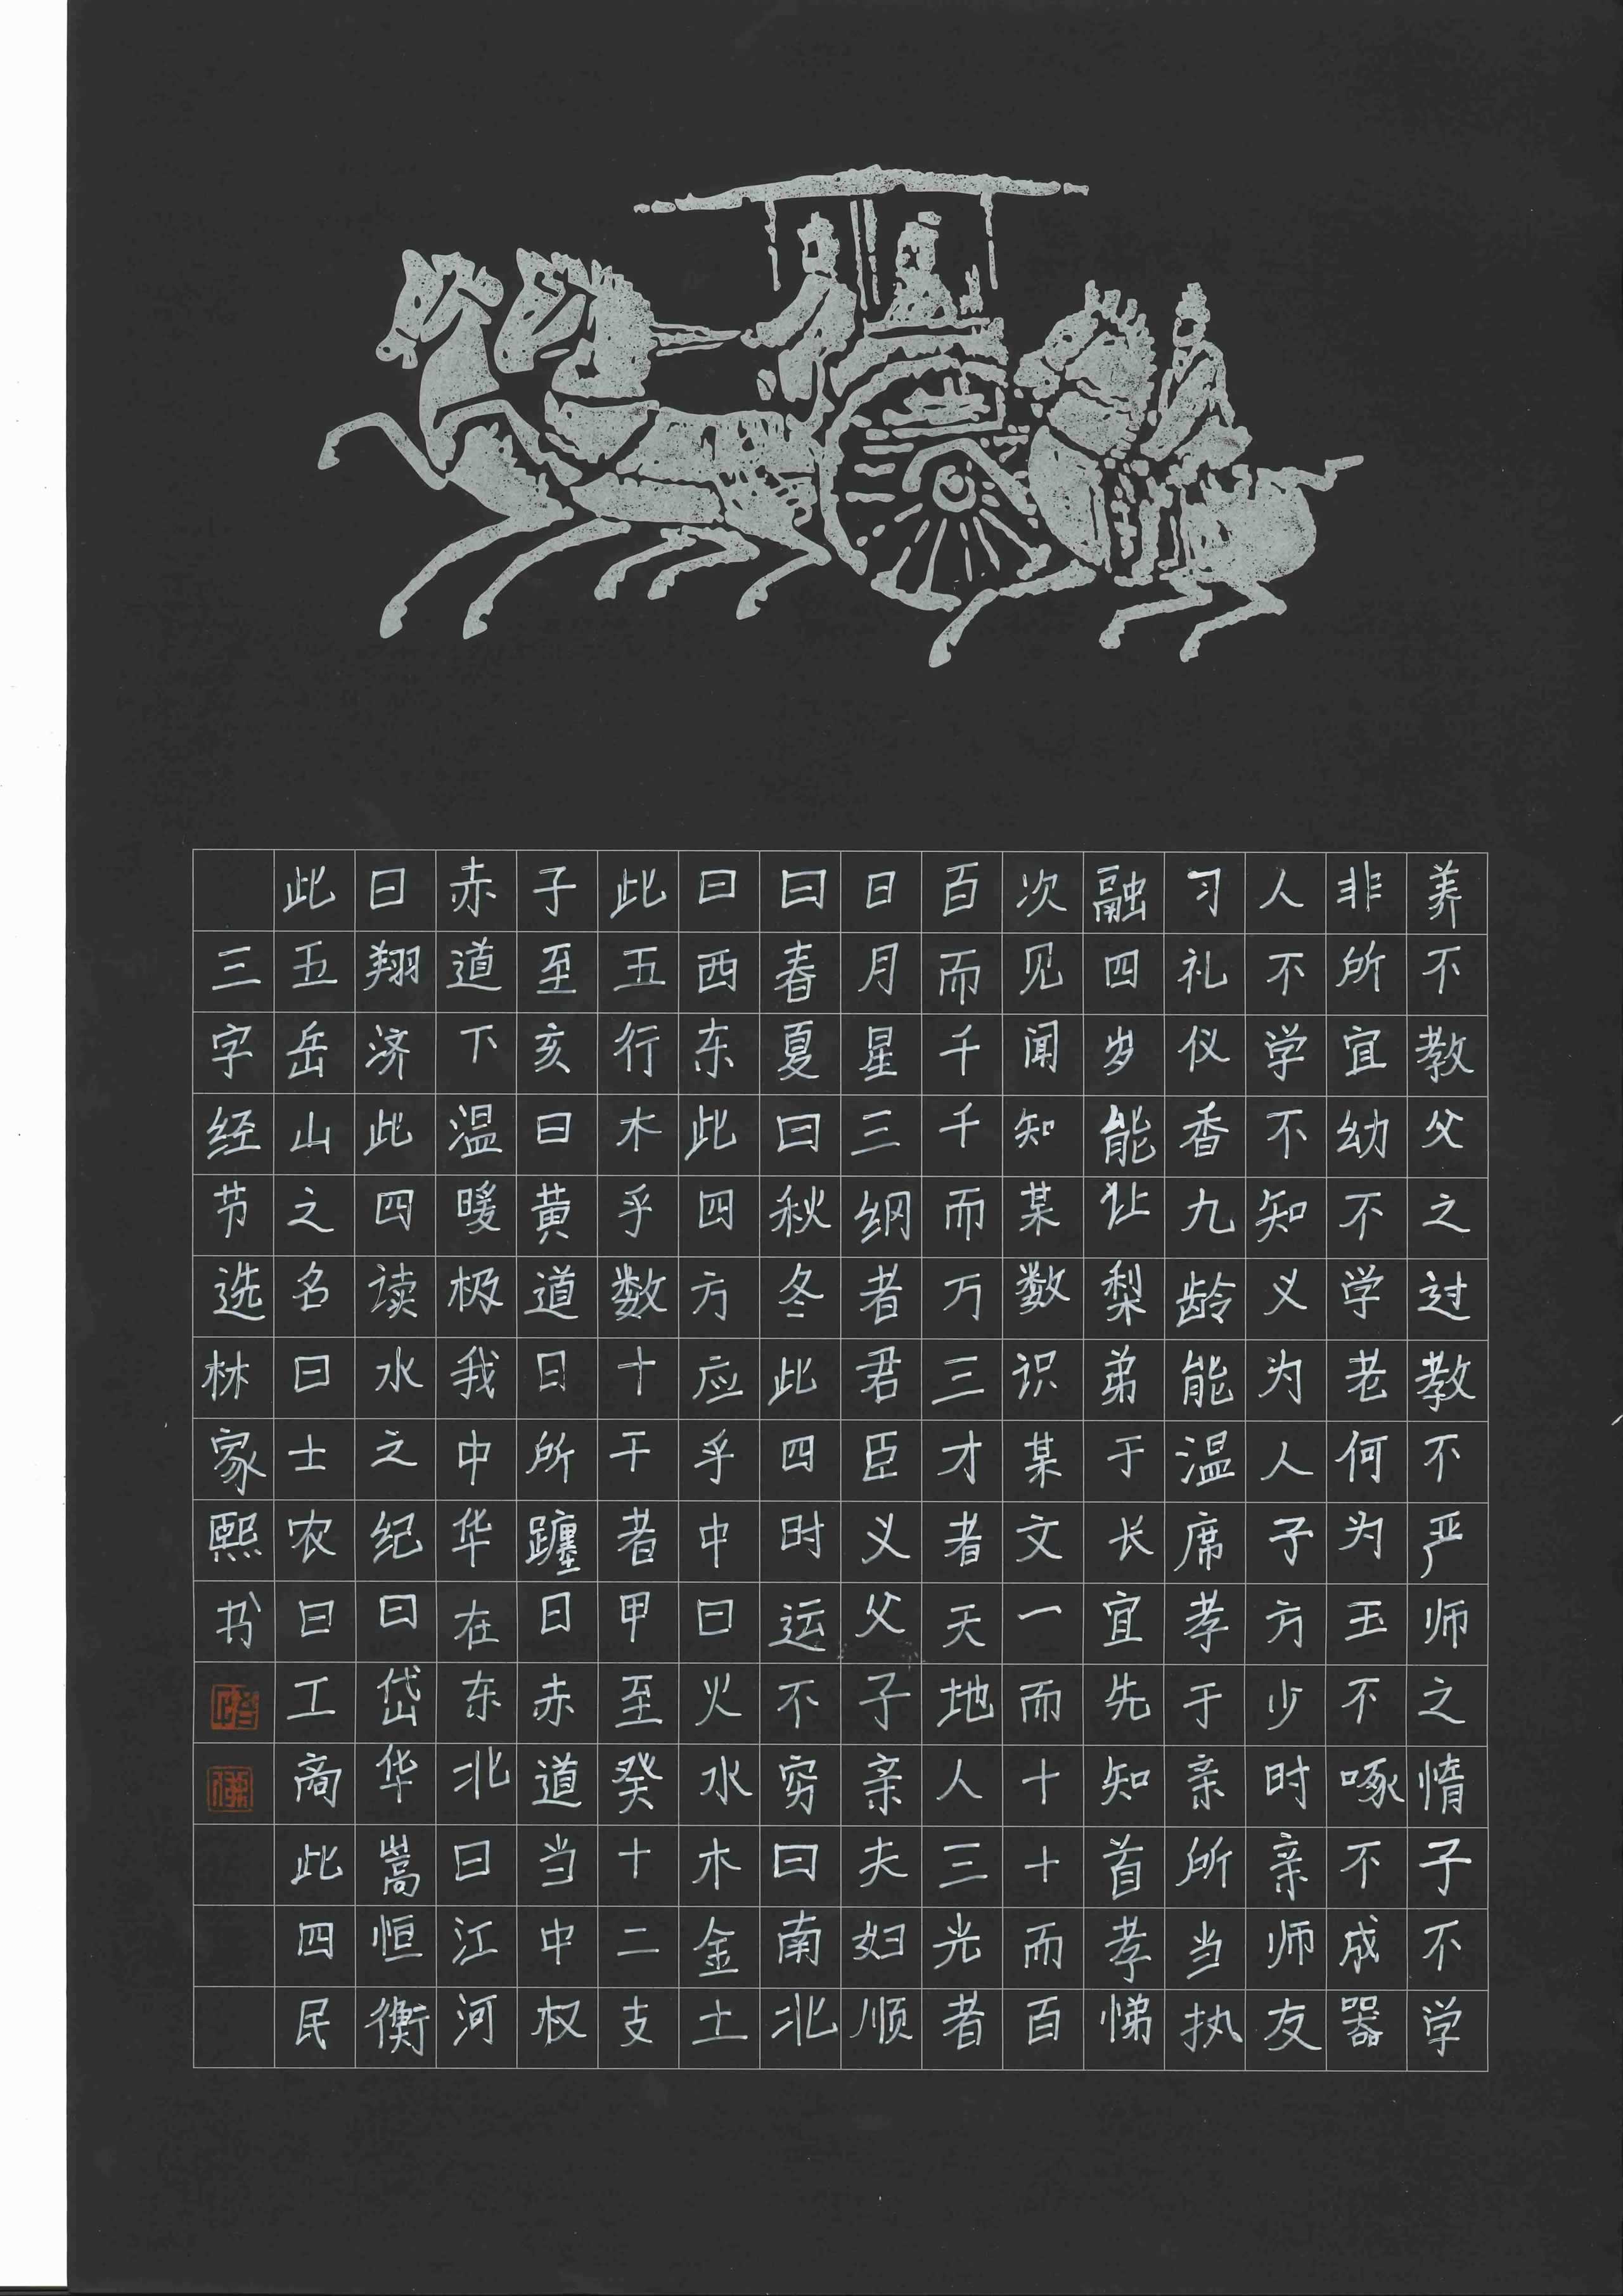 养不教父之过教不严师之惰子不学
非所宜幼不学老何为玉不啄不成器
人不学不知义为人子方少时亲师友
习礼仪香九龄能温席孝于亲所当执
融四岁能让梨弟于长宜先知首孝悌
次见闻知某数识某文一而十十而百
百而千千而万三才者天地人三光者
日月星三纲者君臣义父子亲夫妇顺
曰春夏曰秋冬此四时运不穷曰南北
曰西东此四方应乎中曰火水木金土
此五行木乎数十干者甲至癸十二支
子至亥曰黄道日所躔曰赤道当中权
赤道下温暖极我中华在东北曰江河
曰翔济此四读水之纪曰岱华嵩恒衡
此五岳山之名曰士农曰工商此四民
三字经节选林家熙书